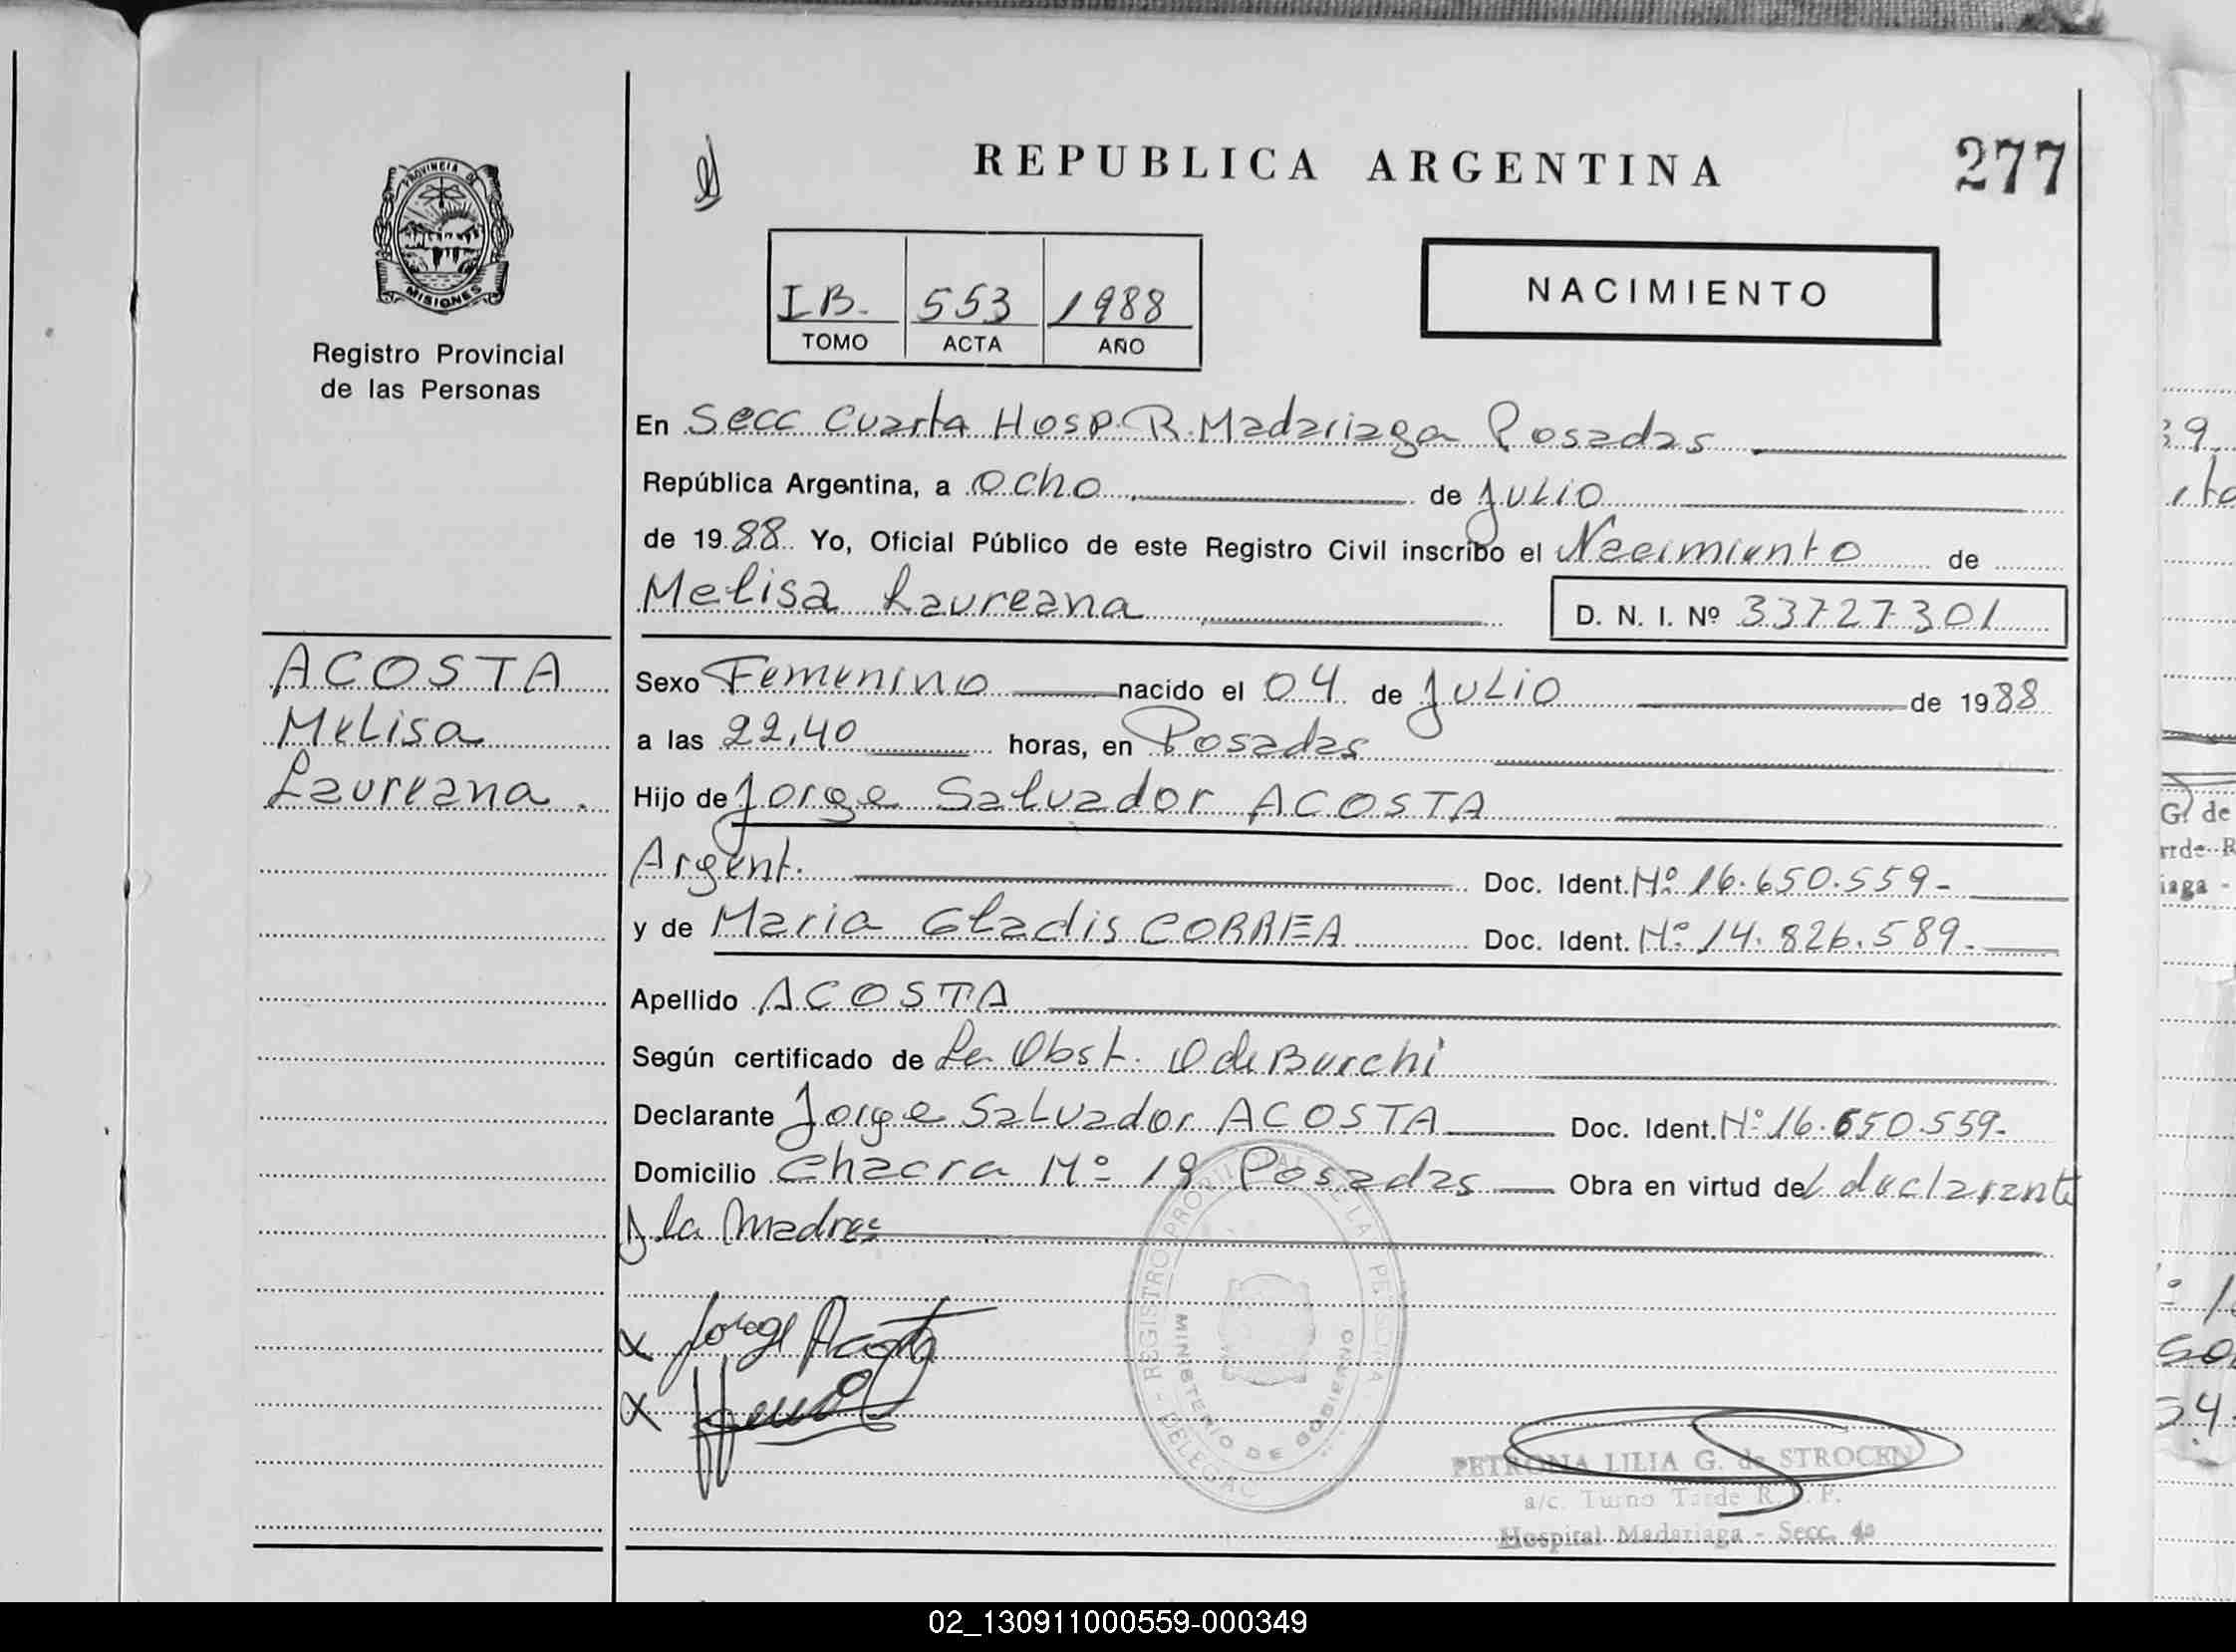 REPUBLICA ARGENTINA
277
PROVINCIA DE
MISIONES
Registro Provincial
de las Personas
I B. 553 1988
TOMO ACTA AÑO
NACIMIENTO
En Secc Cuarta Hosp. R. Madariaga Posadas
República Argentina, a ocho de Julio
de 1988 Yo, Oficial Público de este Registro Civil inscribo el Nacimiento de
Melisa Laureana D. N. I. Nº 33727301
ACOSTA
Melisa
Laureana.
Sexo Femenino nacido el 04 de Julio de 1988
a las 22,40 horas, en Posadas
Hijo de Jorge Salvador ACOSTA
Argent. Doc. Ident. Nº 16.650.559-
y de Maria Gladis CORREA Doc. Ident. Nº 14.826.589-
Apellido ACOSTA
Según certificado de La Obst. O de Burchi
Declarante Jorge Salvador ACOSTA Doc. Ident. Nº 16.650.559-
Domicilio Chacra Nº 19 Posadas Obra en virtud del declarante
y la Madre
x Jorge Acosta
x
REGISTRO PROVINCIAL DE LAS PERSONAS
MINISTERIO DE GOBIERNO
PETRONA LILIA G. de STROCEN
a/c. Turno Tarde R. P. P.
Hospital Madariaga - Secc. 4a
02_130911000559-000349